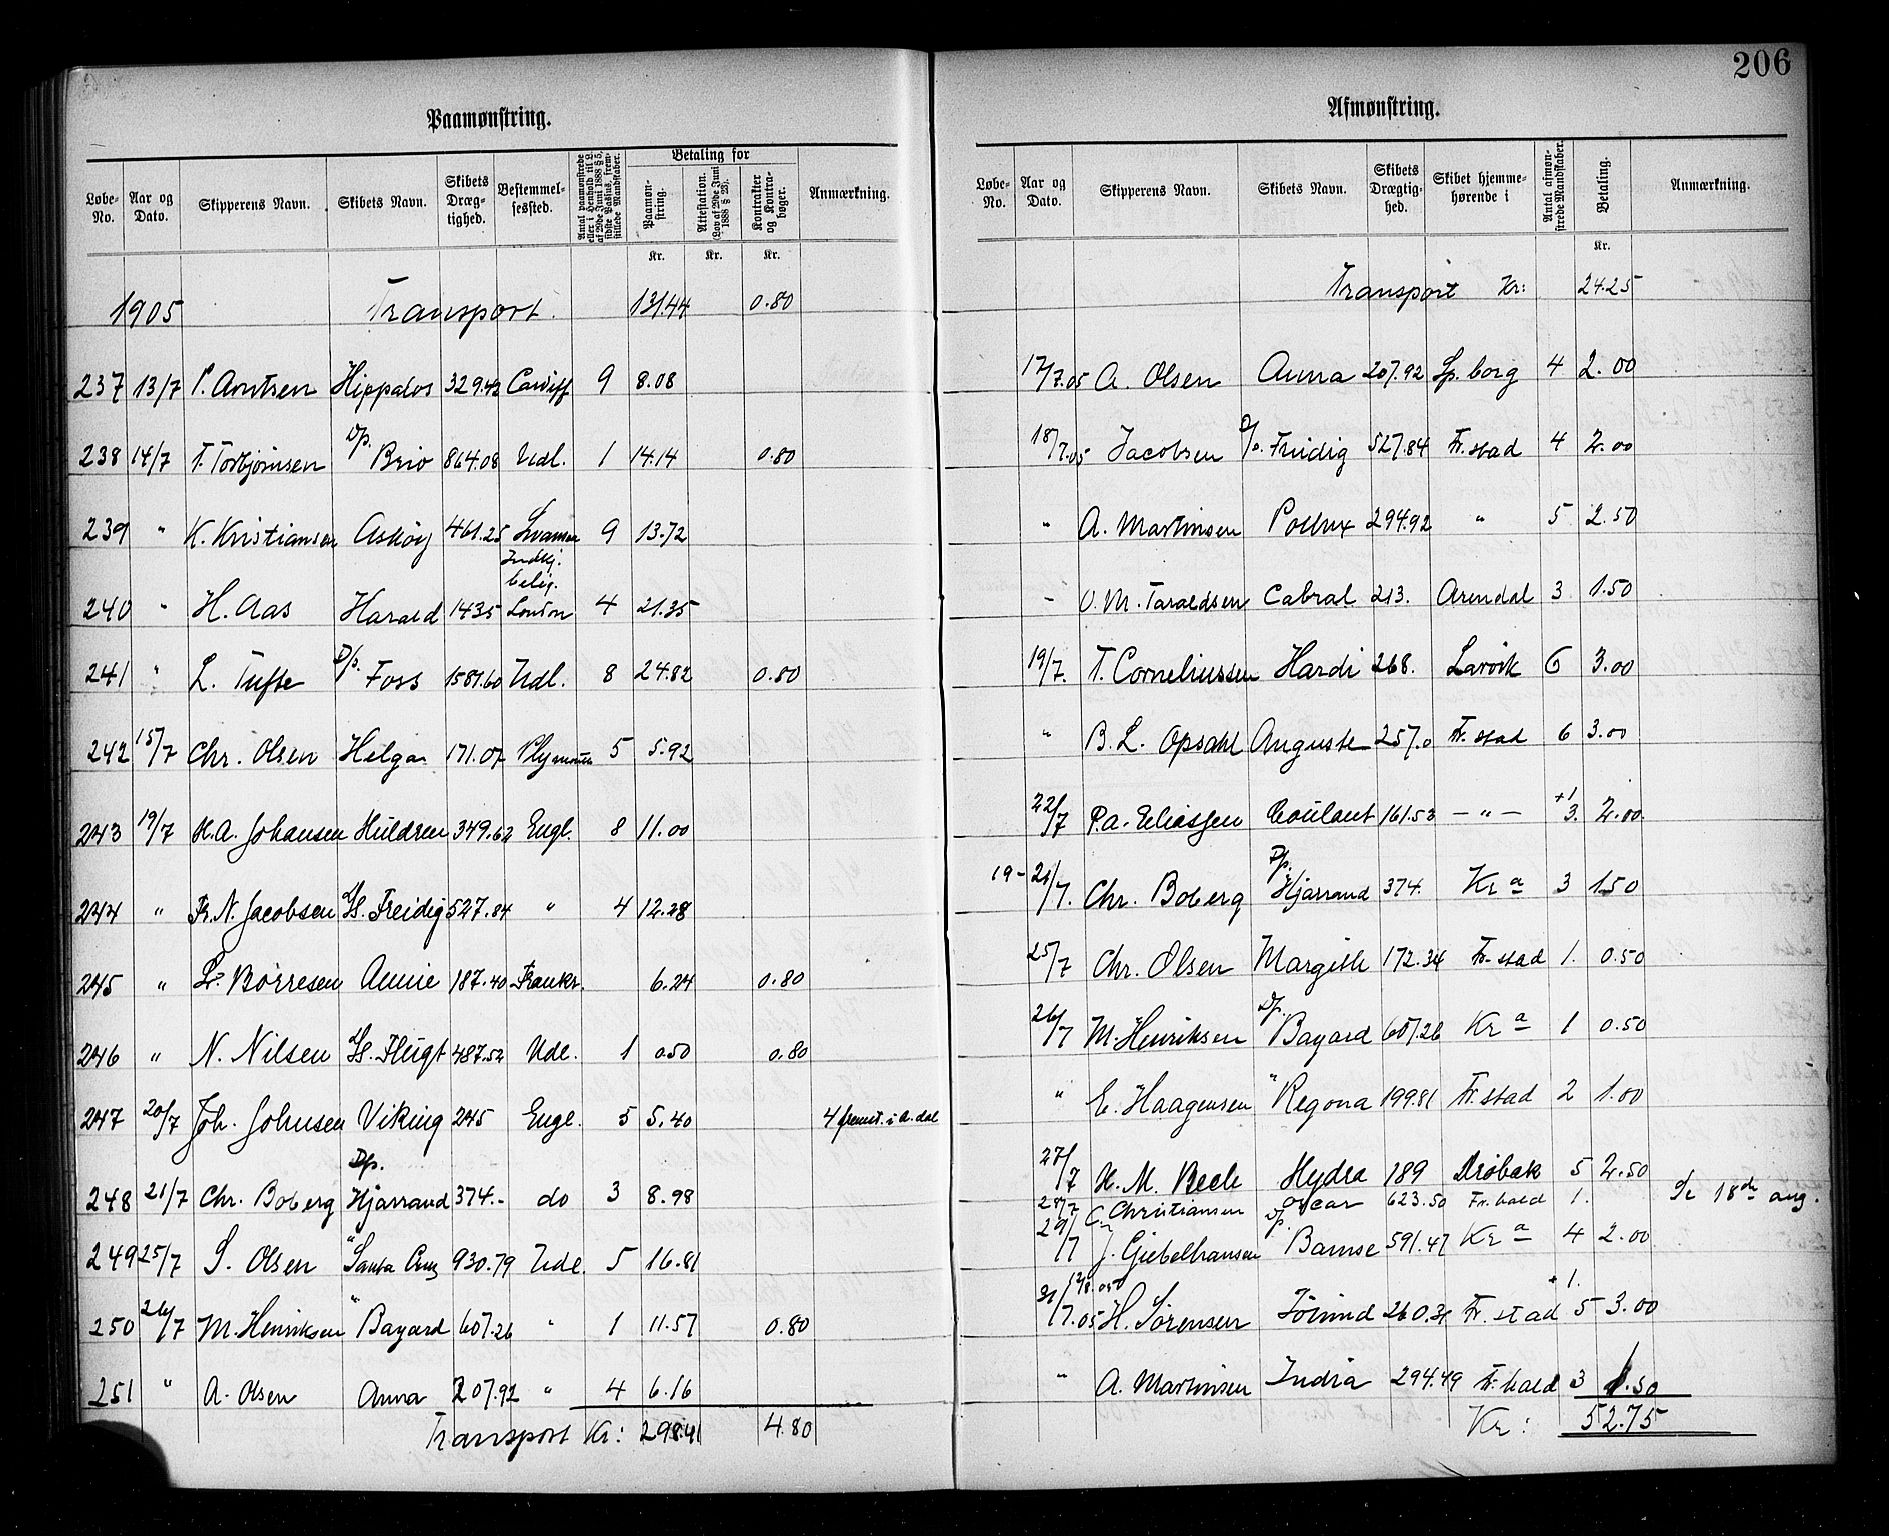 206
Paamønstring.
Løbe-No. | Aar og Dato. | Skipperens Navn. | Skibets Navn. | Skibets Dræg-tighed. | Bestemmel-sessted. | Antal paamønstrede eller i Henhold til L. af 29de Juni 1888 § 5, sidste Passus, frem-stillede Mandskaber. | Betaling for | Anmærkning.
Paamøn-string. | Attestation. (Lov af 29de Juni 1888 § 23). | Kontrakter og Kontra-bøger.
Kr. | Kr. | Kr.
1905 Transport. 131.44 0.80
237 13/7 P. Arntsen Hippalos 329.42 Cardiff 9 8.08
238 14/7 T. Torbjørnsen D/p. Brio 864.08 Udl. 1 14.14 0.80
239 " K. Kristiansen Asköy 461.25 9 13.72
240 " H. Aas Harald 1435 London 4 21.35
241 " L. Tufte D/p. Foss 1581.60 Udl. 8 24.82 0.80
242 15/7 Chr. Olsen Helga 171.07 Plymouth 5 5.92
243 19/7 H.A. Johansen Huldren 349.62 Engl. 8 11.00
244 " Fr. N. Jacobsen Freidig 527.84 " 4 12.28
245 " L. Börresen Annie 187.40 Frankr. 6.24 0.80
246 " N. Nilsen Flügt 487.52 Udl. 1 0.50 0.80
247 20/7 Joh. Johnsen Viking 245 Engl. 5 5.40 4 fremst. i A.dal
248 21/7 Chr. Boberg Dp. Hjarrand 374.- do 3 8.98
249 25/7 S. Olsen " Santa Cruz 930.79 Udl. 5 16.81
250 26/7 M. Henriksen " Bayard 607.26 " 1 11.57 0.80
251 " A. Olsen Anna 207.92 " 4 6.16
Transport Kr: 298.41 4.80
Afmønstring.
Løbe-No. | Aar og Dato. | Skipperens Navn. | Skibets Navn. | Skibets Drægtig-hed. | Skibet hjemme-hørende i | Antal afmøn-strede Mandskaber. | Betaling. | Anmærkning.
Kr.
Transport Kr: 24.25
17/7.05 A. Olsen Anna 207.92 Sp.borg 4 2.00
18/7.05 Jacobsen D/p. Freidig 527.84 Fr.stad 4 2.00
" A. Martinsen Pollux 294.92 " 5 2.50
- O. M. Taraldsen Cabral 213. Arendal 3 1.50
19/7. T. Corneliussen Hardi 268. Larvik 6 3.00
" B. L. Opsahl Auguste 257.0 Fr.stad 6 3.00
22/7 P.A. Eliassen Coulant 161.53 - " - +1 3. 2.00
19- 21/7. Chr. Boberg Dp. Hjarrand 374. Kr a 3 1.50
25/7 Chr. Olsen Margith 172.34 Fr.stad 1. 0.50
26/7 M. Henriksen Dp. Bayard 607.26 Kr a 1 0.50
" E. Haagensen " Regona 199.81 Fr.stad 2 1.00
27/7 H. M. Beck Hydra 189 Dröbak 5 2.50
28/7 C. Christiansen Oscar 623.50 Fr.hald 1. Se 18de aug.
29/7 J. Giebelhausen Dp. Bamse 591.47 Kr a 4 2.00
31/7.05 H. Sörensen 260.31 Fr.stad +1. 5 3.00
" A. Martinsen India 294.49 Fr.hald 3 1.50
Kr: 52.75